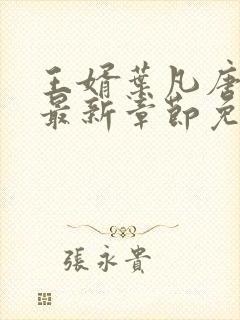 王婿葉凡唐
最新章節免
張永貴